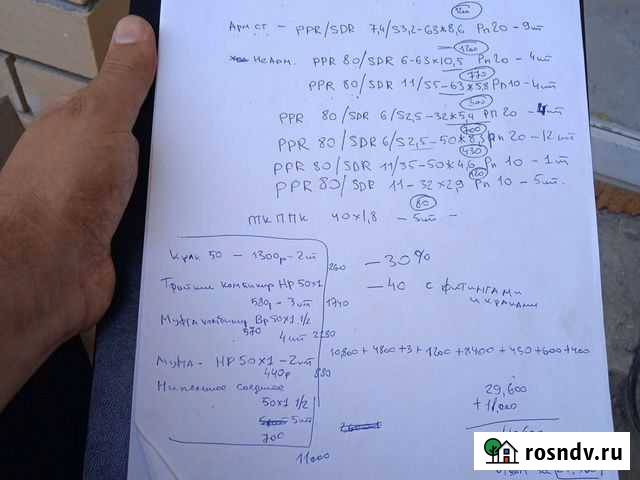 1200
Арм ст - PPR/SDR 7,4/S3,2-63*8,6 Pп20 - 9шт
1200
Неарм. PPR 80/SDR 6-63x10,5 Pп20 - 4шт
770
PPR 80/SDR 11/S5-63*5,8 Pп10-4шт
300
PPR 80/SDR 6/S2,5-32*5,4 Pп20 - 4шт
700
PPR 80/SDR 6/S2,5-50*8,3 Pп 20-12шт
430
PPR 80/SDR 11/S5-50*4,6 Pп 10 - 1шт
120
PPR 80/SDR 11-32x2,9 Pп 10 - 5шт.
80
ТК ППК 40x1,8 - 5шт -
Кран 50 - 1300р-2шт
2600
- 30%
Тройник комбинир НР 50x1
580р - 3шт 1740
- 40 с фитингами и кранами
Муфта комбинир Вр 50x1 1/2
570 4шт 2280
10800 + 4800+3+1200+8400+450+600+400
Муфта - НР 50x1-2шт
440р 880
50x1 1/2
5шт
700
29,600
+ 11,000
11000
rosndv.ru